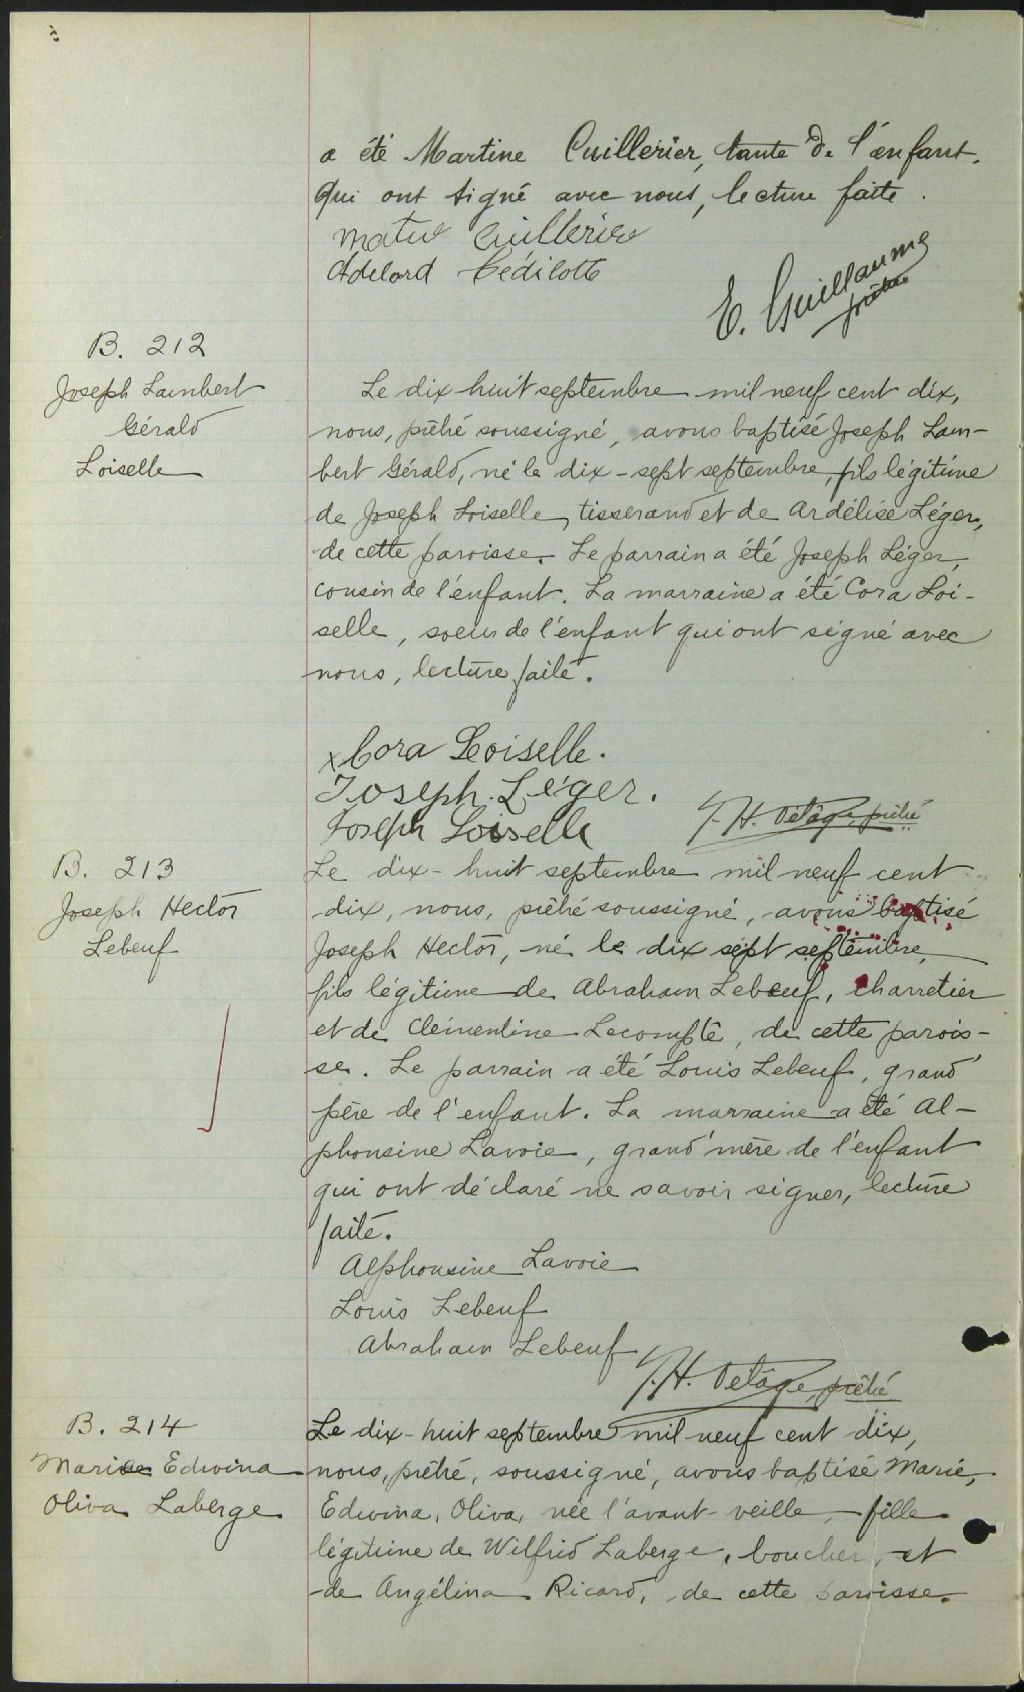 a été Martine Cuillerier, tante de l'enfant.
qui ont signé avec nous, lecture faite.
Cuillerier
Adelard Cédilotte
E. Guillaume
prêtre
B. 212
Joseph Lambert
Gérald
Loiselle
Le dix huit septembre mil neuf cent dix,
nous, prêtre soussigné, avons baptisé Joseph Lam-
bert Gérald, né le dix-sept septembre, fils légitime
de Joseph Loiselle, tisserand et de Ardélise Léger,
de cette paroisse. Le parrain a été Joseph Léger,
cousin de l'enfant. La marraine a été Cora Loi-
selle, soeur de l'enfant qui ont signé avec
nous, lecture faite.
x Cora Loiselle.
Joseph Léger.
Joseph Loiselle
J. H. Delâge, prêtre
B. 213
Joseph Hector
Lebeuf
Le dix-huit septembre mil neuf cent
dix, nous, prêtre soussigné, avons baptisé
Joseph Hector, né le dix sept septembre,
fils légitime de Abraham Lebeuf, charretier
et de Clémentine Lecompte, de cette parois-
se. Le parrain a été Louis Lebeuf, grand
père de l'enfant. La marraine a été Al-
phonsine Lavoie, grand'mère de l'enfant
qui ont déclaré ne savoir signer, lecture
faite.
Alphonsine Lavoie
Louis Lebeuf
Abraham Lebeuf
J. H. Delâge, prêtre
B. 214
Marie Edwina
Oliva Laberge
Le dix-huit septembre mil neuf cent dix,
nous, prêtre, soussigné, avons baptisé Marie,
Edwina, Oliva, née l'avant-veille, fille
légitime de Wilfrid Laberge, boucher, et
de Angélina Ricard, de cette paroisse.